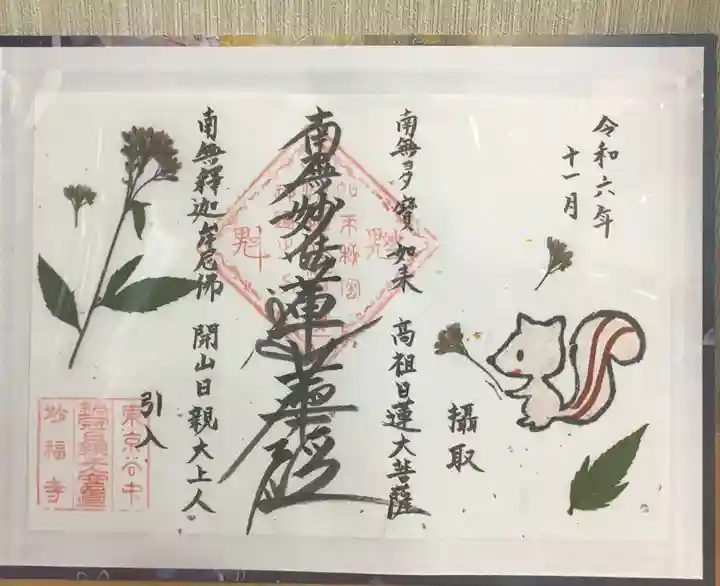 令和六年
十一月
攝取
南無多寶如来 高祖日蓮大菩薩
南無妙法蓮華経
南無釋迦牟尼佛 開山日親大上人
引入
東京谷中
妙福寺